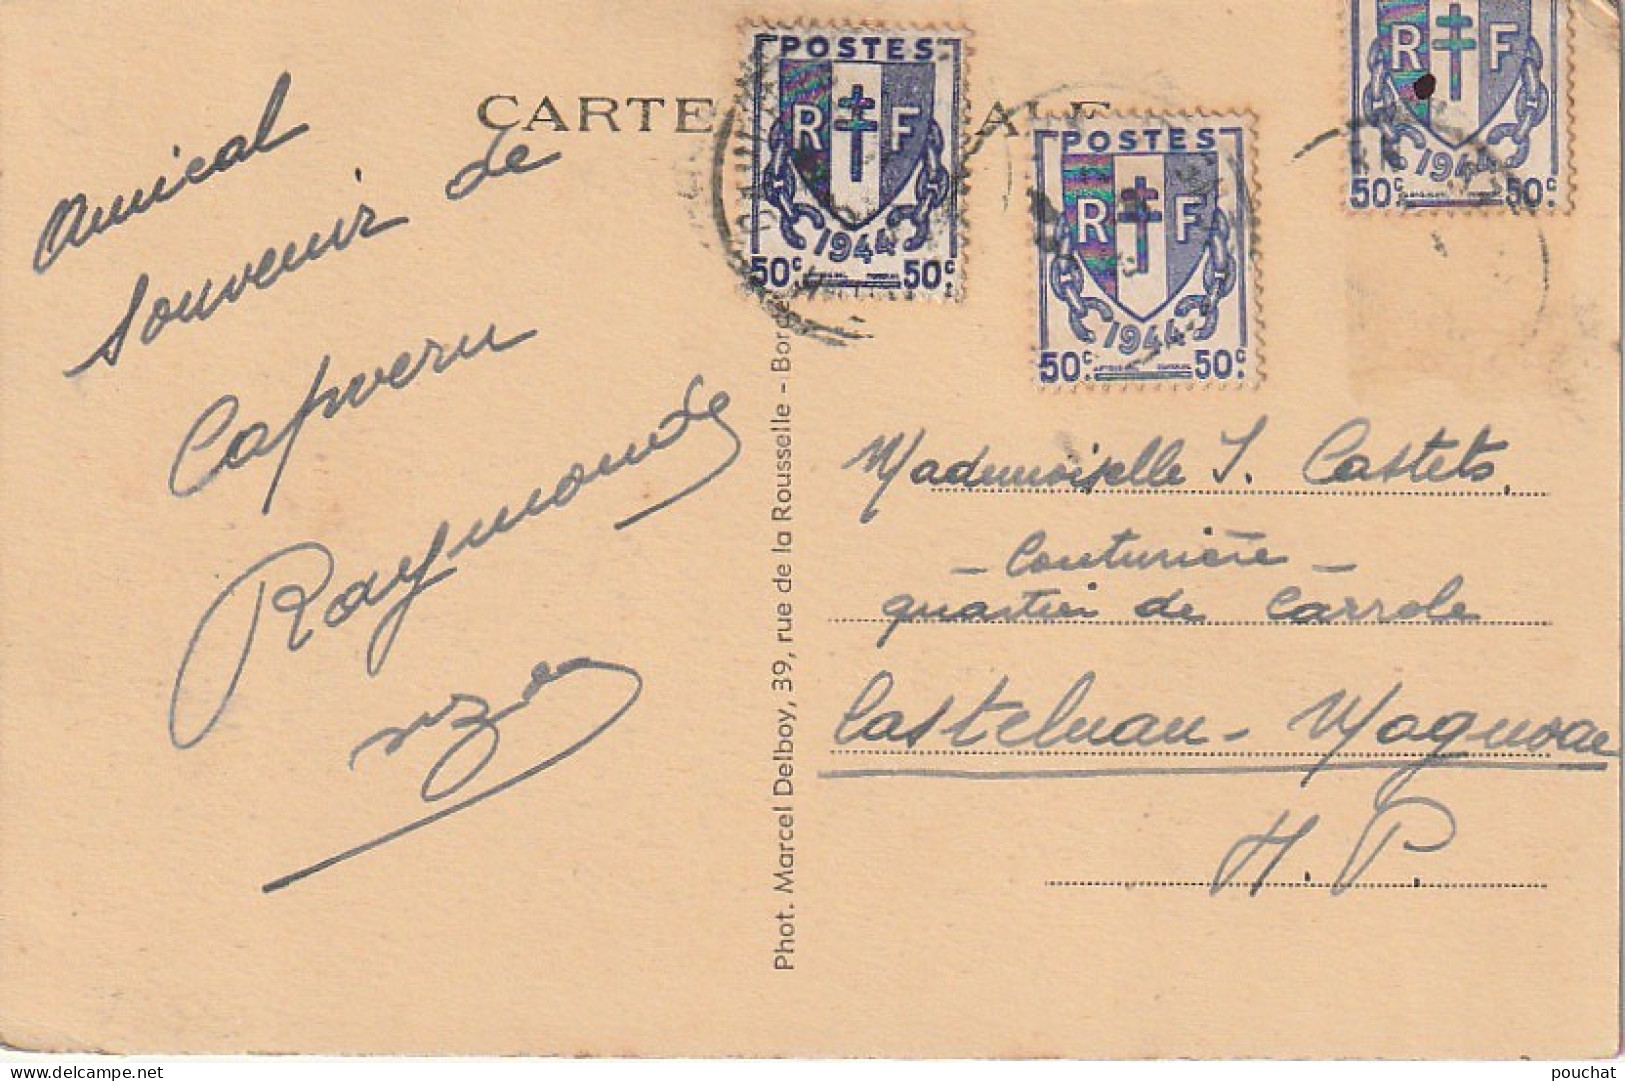 CARTE ALE
POSTES
RF
1944
50c. 50c.
POSTES
RF
1944
50c. 50c.
RF
1944
50c. 50c.
Amical
Souvenir de
Capvern
Raymonde
Phot. Marcel Delboy, 39, rue de la Rousselle - Bord
Mademoiselle J. Castets
- Couturière -
quartier de Carrole
Castelnau - Magnoac
H. P.
delcampe.net
pouchat